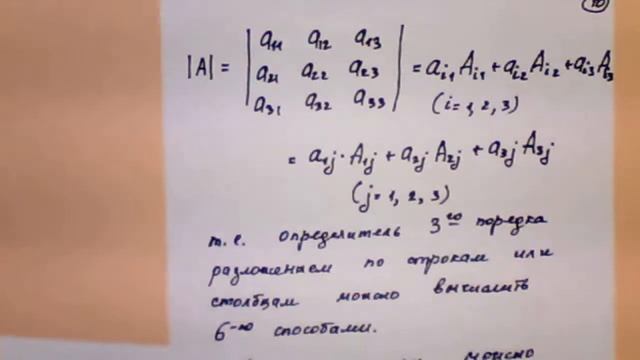 10
|A| = | a₁₁ a₁₂ a₁₃ |
| a₂₁ a₂₂ a₂₃ | = aᵢ₁Aᵢ₁ + aᵢ₂Aᵢ₂ + aᵢ₃Aᵢ₃
| a₃₁ a₃₂ a₃₃ | (i = 1, 2, 3)
= a₁ⱼ · A₁ⱼ + a₂ⱼ A₂ⱼ + a₃ⱼ A₃ⱼ
(j = 1, 2, 3)
т. е. определитель 3го поредка
разложением по строкам или
столбцам можно вычислить
6-ю способами.
можно